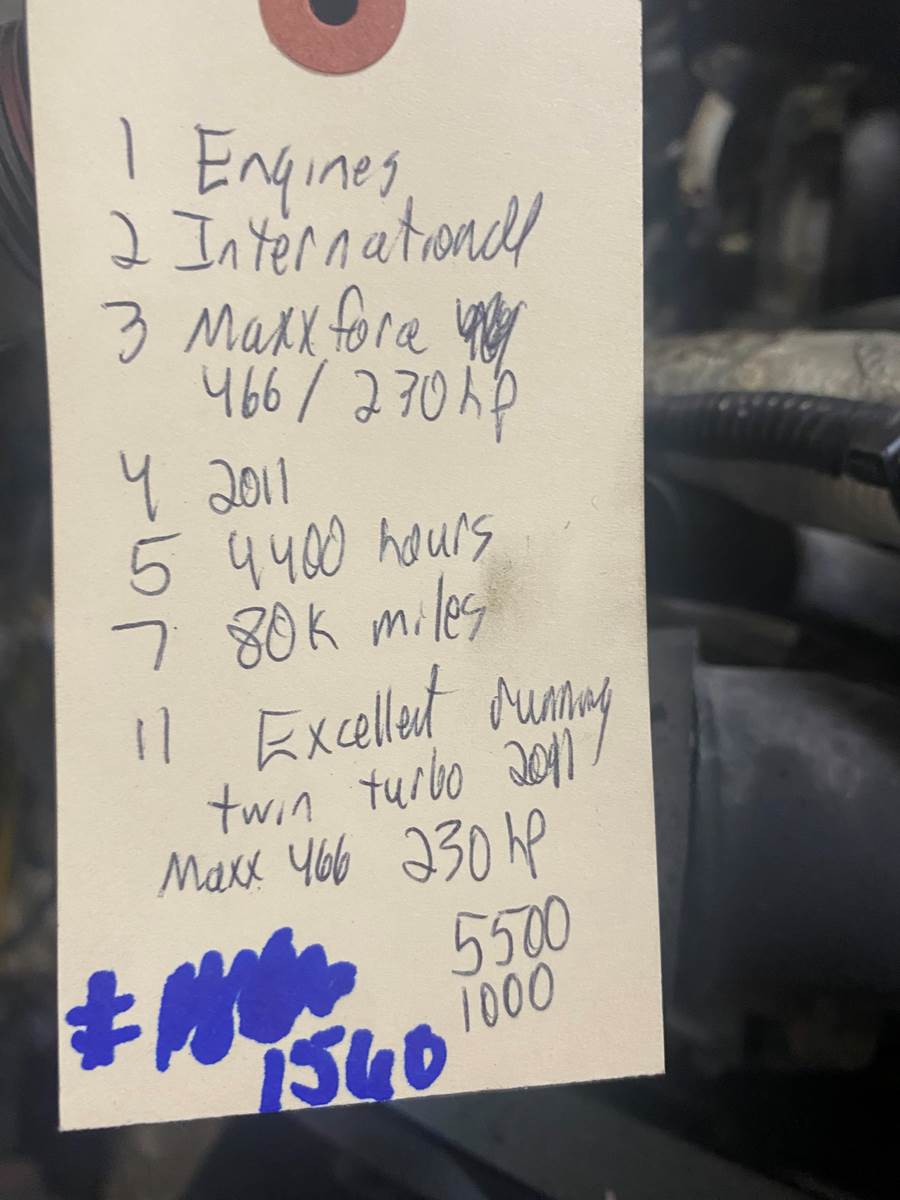 1 Engines
2 International
3 Maxxforce
466 / 230 hp
4 2011
5 4400 hours
7 80K miles
11 Excellent running
twin turbo 2011
Maxx 466 230 hp
5500
1000
1560